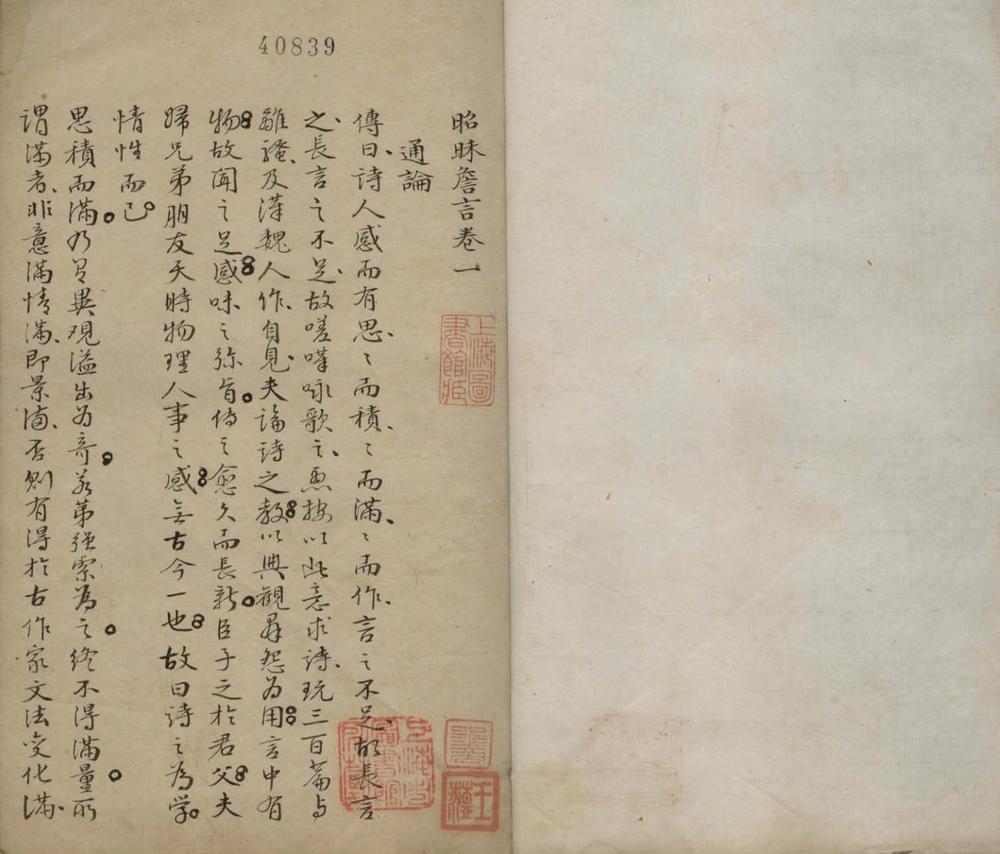 40839
昭昧詹言卷一
通論
傳曰詩人感而有思〻而積〻而滿〻而作言之不足故長言
之長言之不足故嗟嘆咏歌之愚按以此意求詩玩三百篇与
離騷及漢魏人作自見夫論詩之教以興觀羣怨为用言中有
物故聞之足感味之弥旨傳之愈久而長新臣子之於君父夫
婦兄弟朋友天時物理人事之感無古今一也故曰詩之為学
情性而已
思積而滿乃有異觀溢出为奇若第强索為之終不得滿量所
谓滿者非意滿情滿即景滿否則有得於古作家文法变化滿
上海圖書館藏